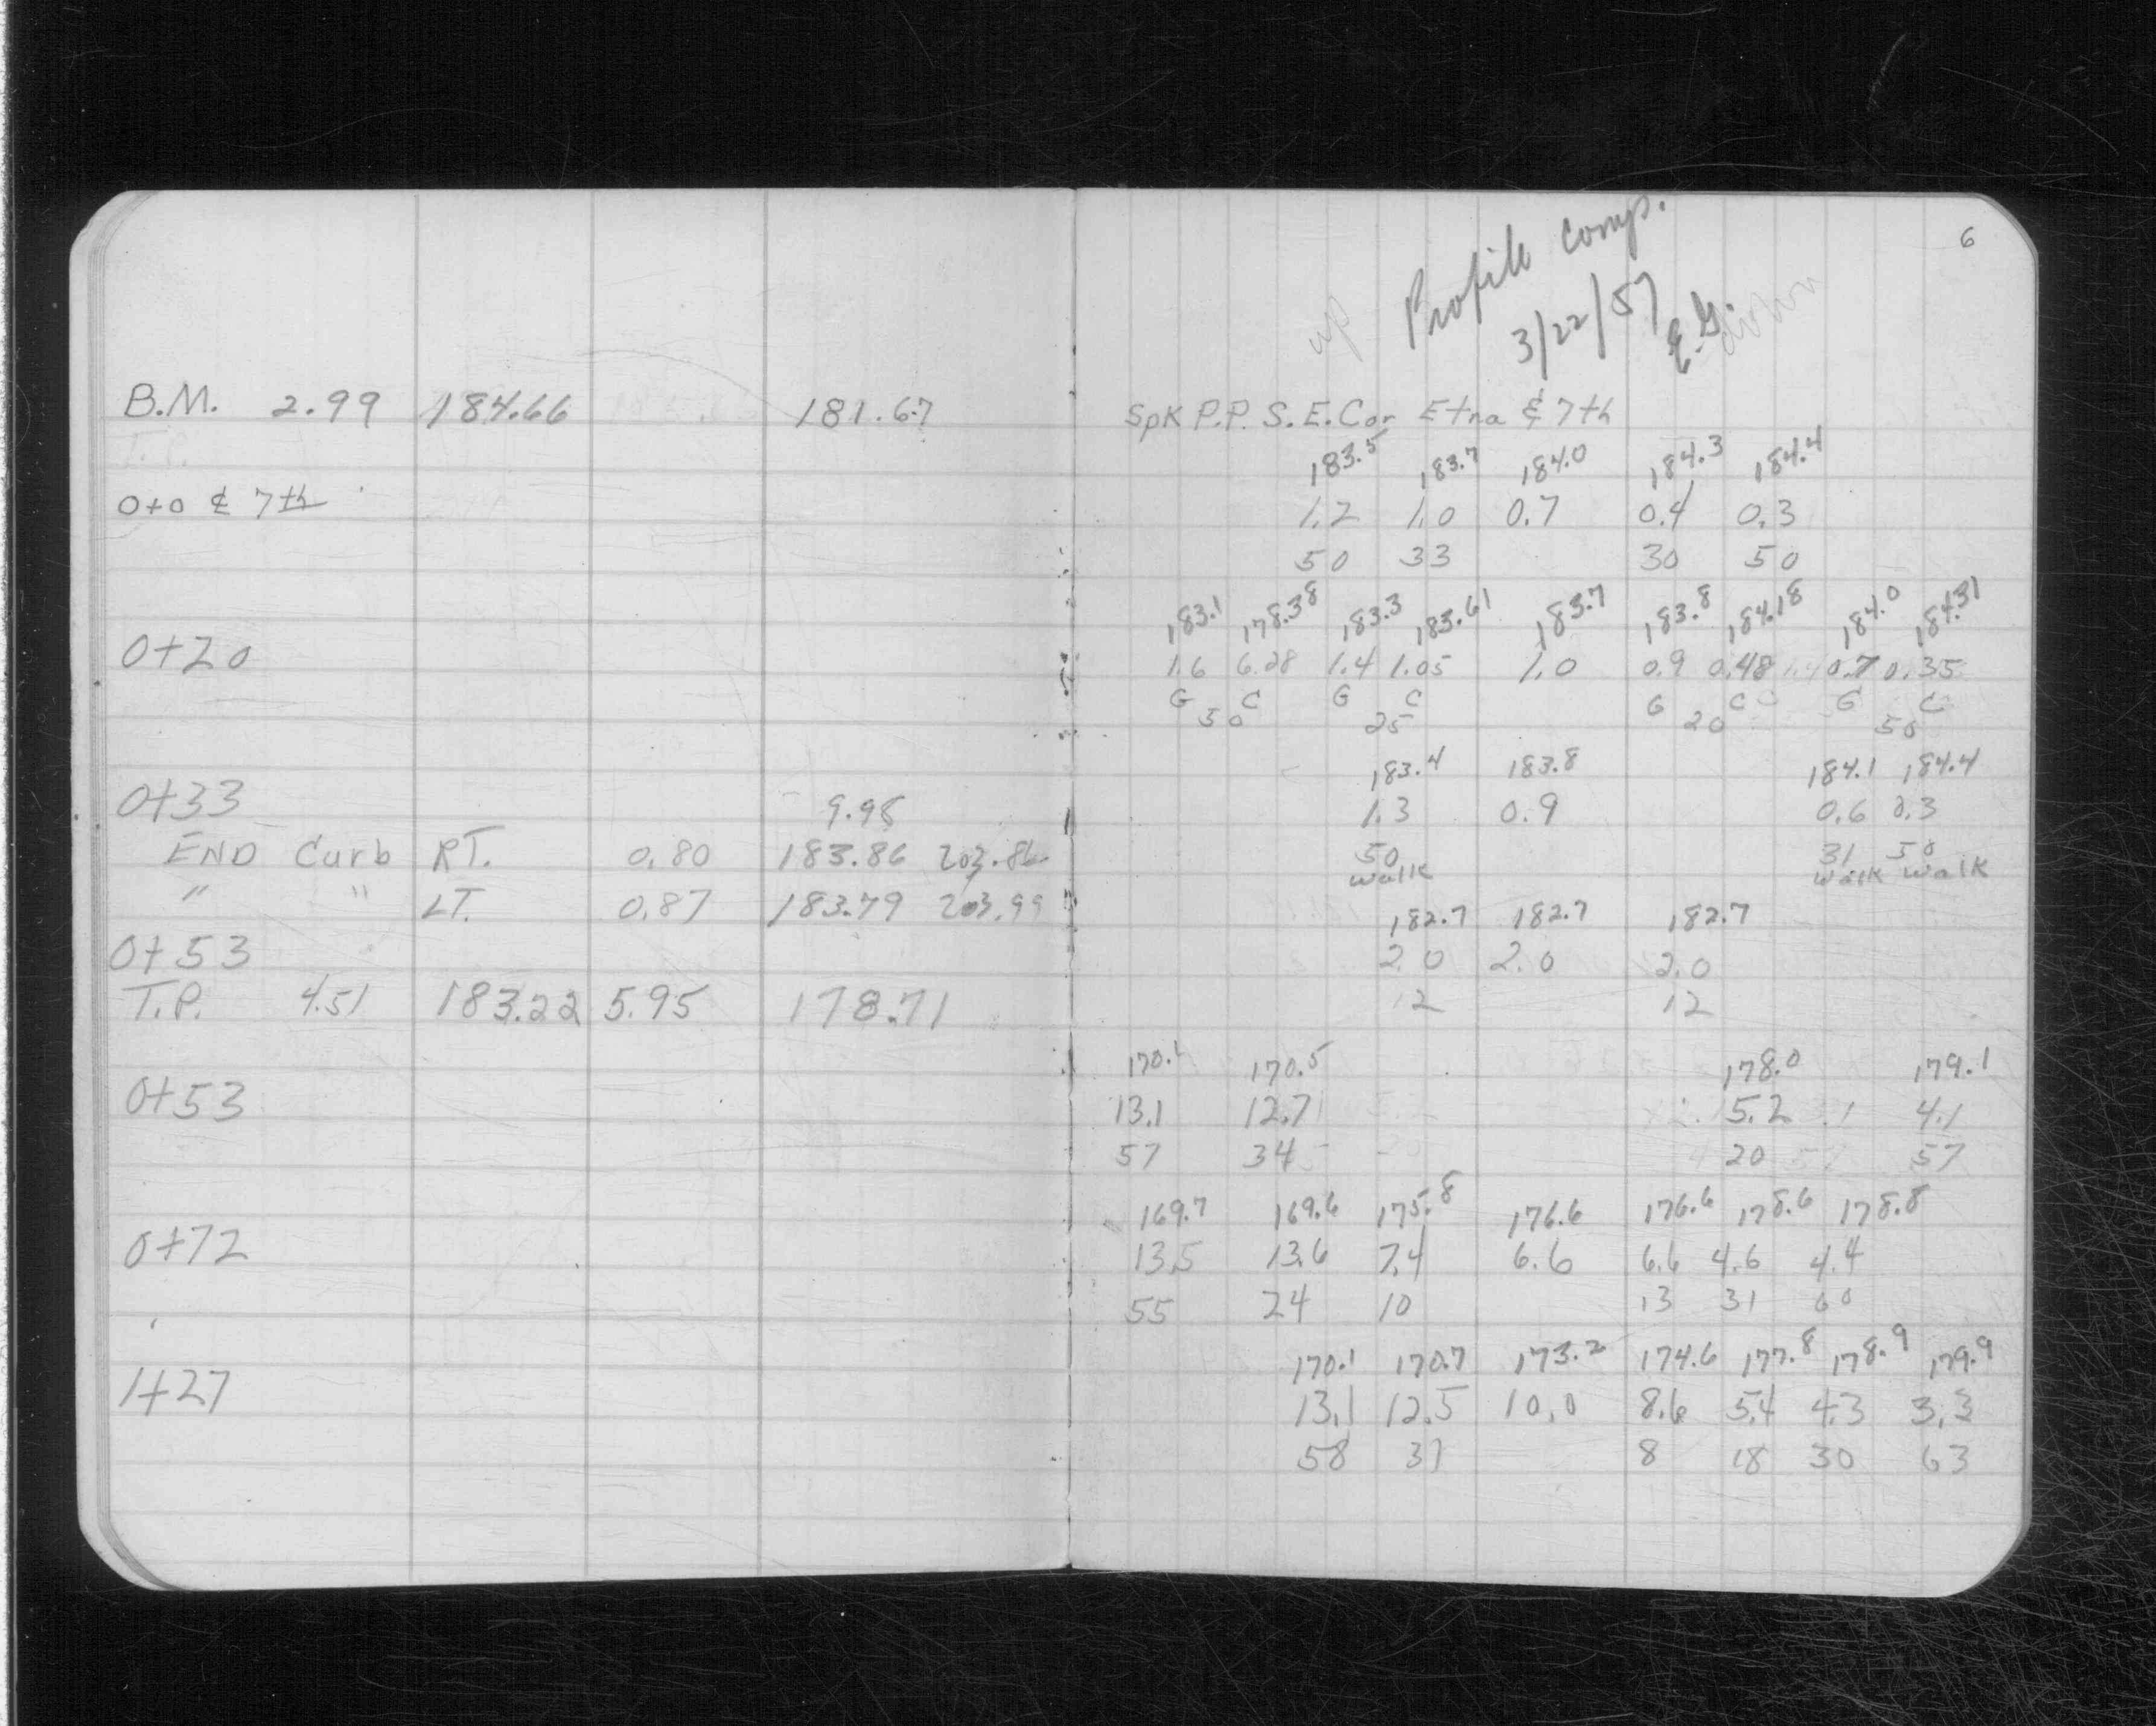 6
up Profile Comp. down
3/22/57 E.G.
B.M. 2.99 184.66 181.67 Spk P.P. S.E. Cor Etna & 7th
183.5 183.7 184.0 184.3 184.4
0+0 ₵ 7th 1.2 1.0 0.7 0.4 0.3
50 33 30 50
183.1 178.38 183.3 183.61 183.7 183.8 184.18 184.0 184.31
0+20 1.6 6.28 1.4 1.05 1.0 0.9 0.48 0.7 0.35
G C G C G C G C
50 25 20 50
183.4 183.8 184.1 184.4
0+33 9.95 1.3 0.9 0.6 0.3
END Curb RT. 0.80 183.86 203.86 50 31 50
walk walk walk
" " LT. 0.87 183.79 203.99
182.7 182.7 182.7
0+53 2.0 2.0 2.0
T.P. 4.51 183.22 5.95 178.71 12 12
170.1 170.5 178.0 179.1
0+53 13.1 12.7 5.2 4.1
57 34 20 57
169.7 169.6 175.8 176.6 176.6 178.6 178.8
0+72 13.5 13.6 7.4 6.6 6.6 4.6 4.4
55 24 10 13 31 60
170.1 170.7 173.2 174.6 177.8 178.9 179.9
1+27 13.1 12.5 10.0 8.6 5.4 4.3 3.3
58 37 8 18 30 63